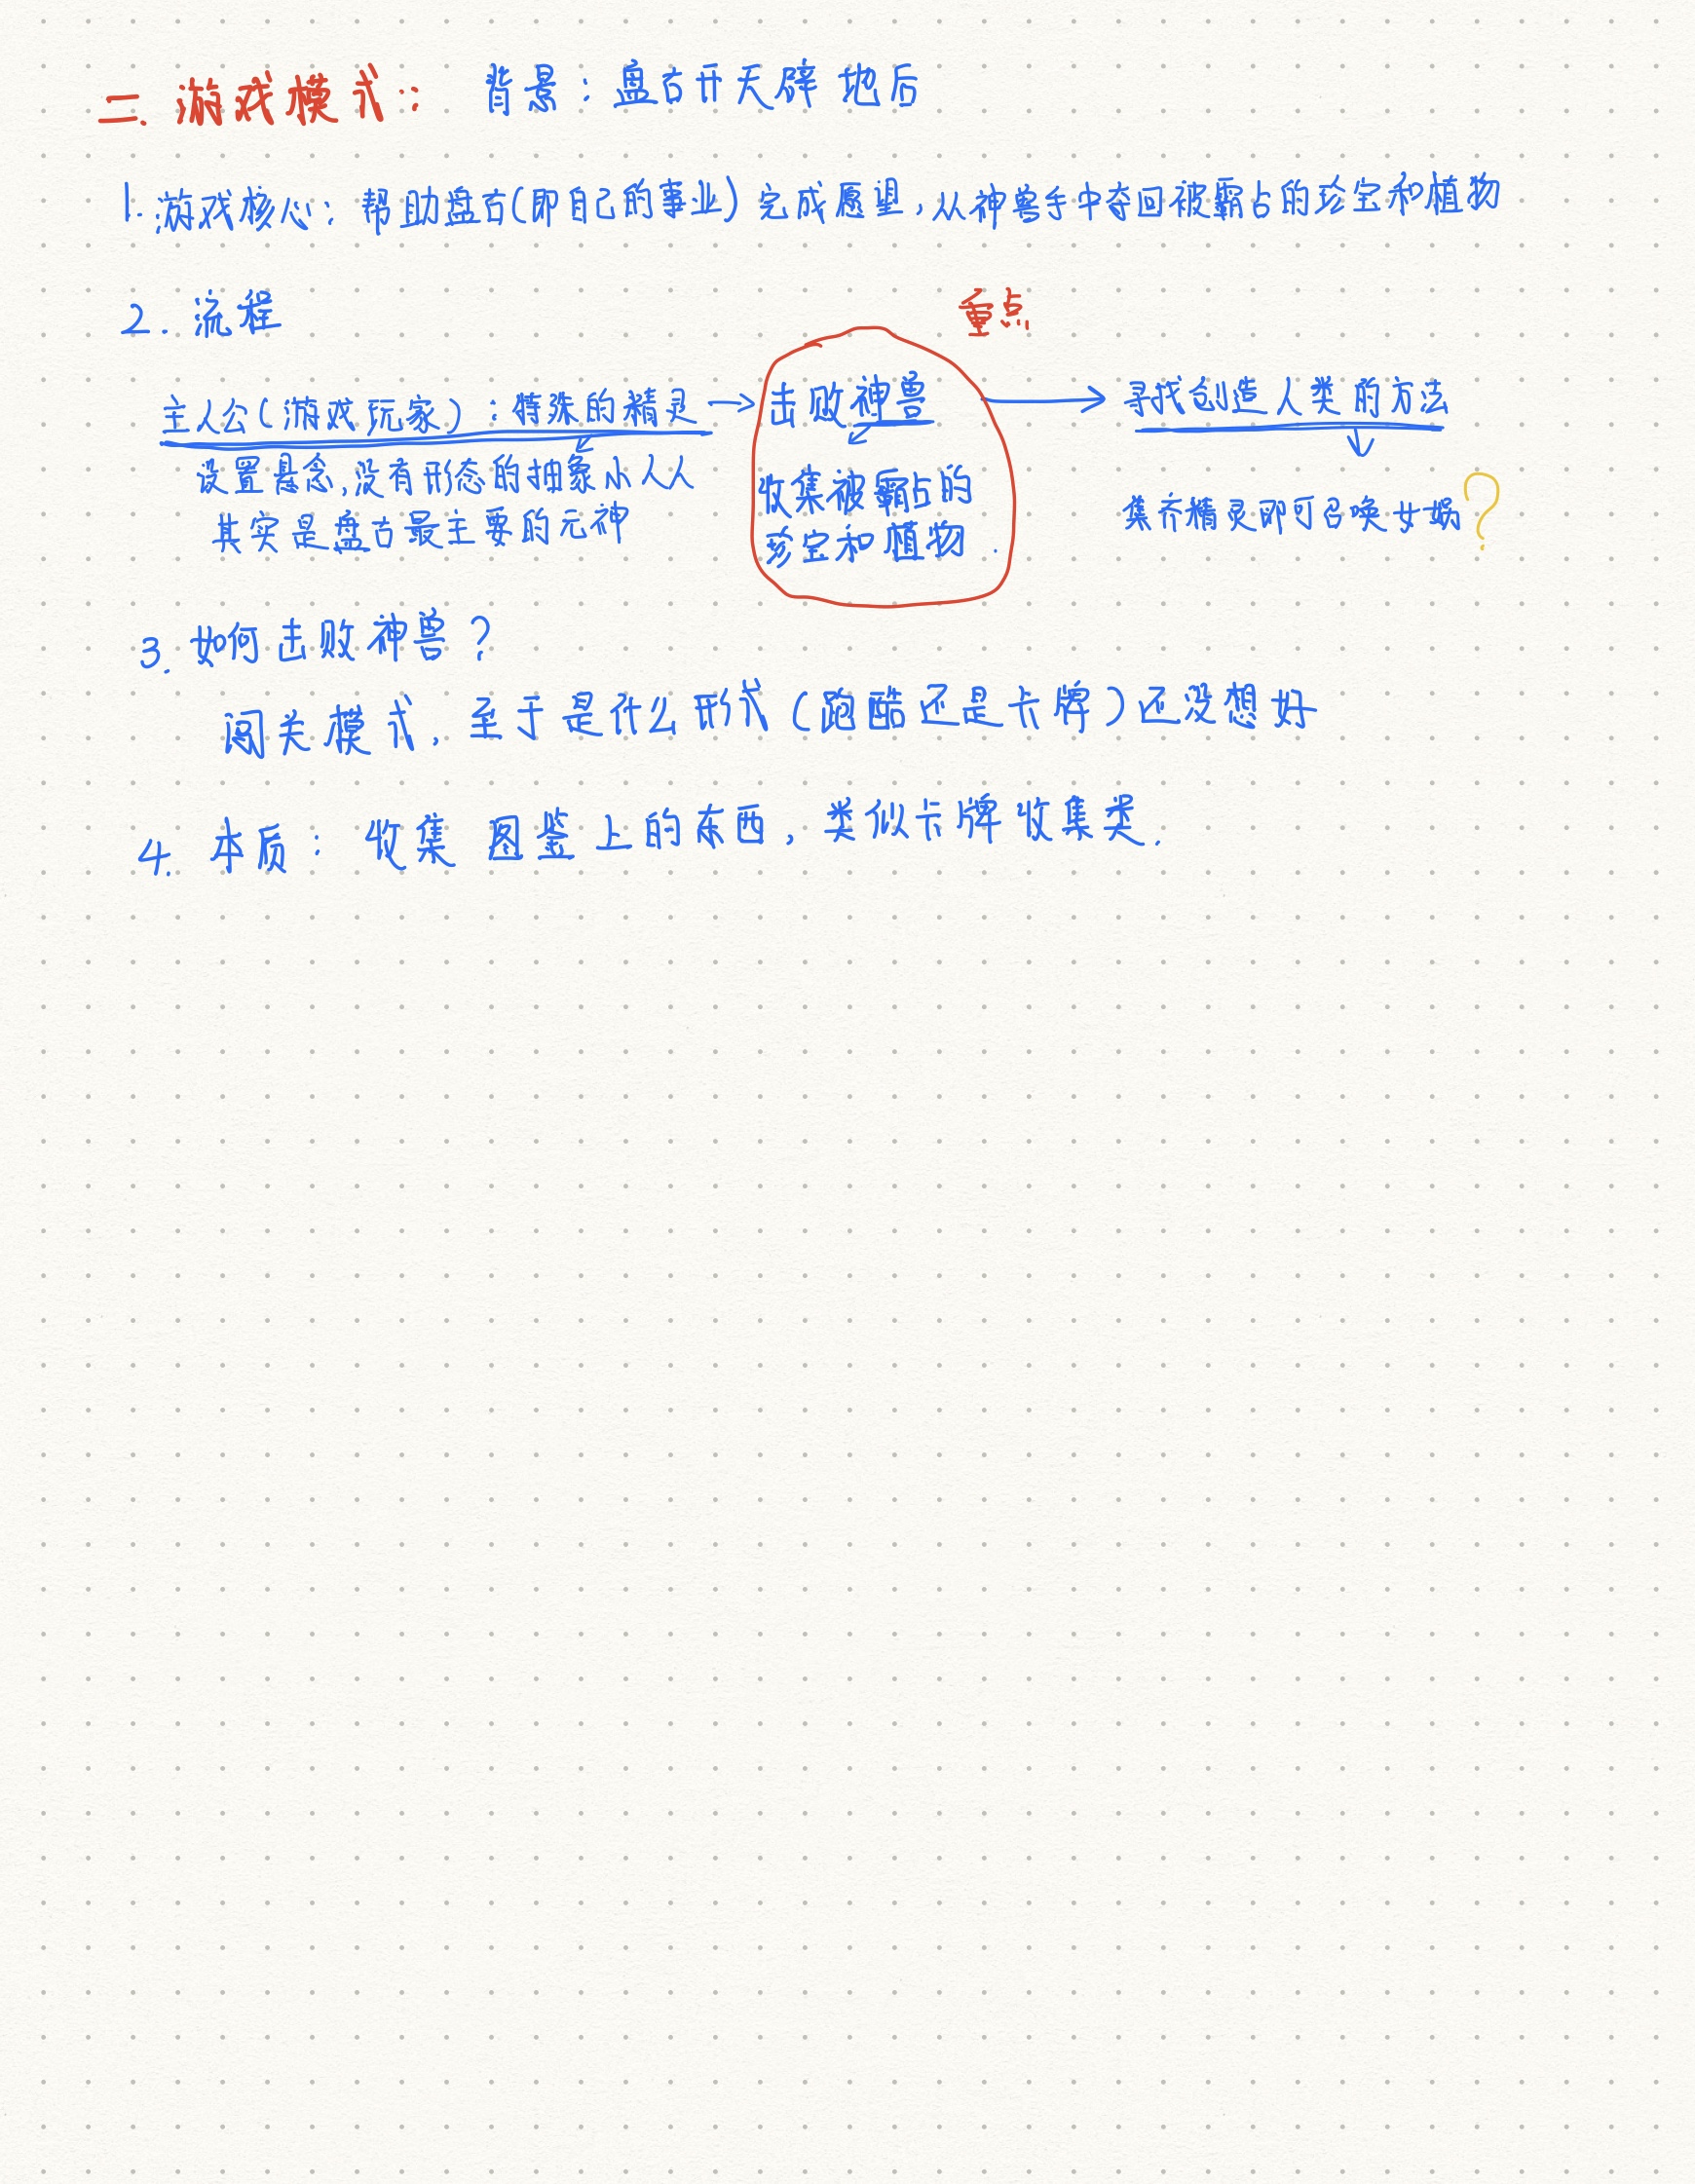 二. 游戏模式： 背景：盘古开天辟地后
1. 游戏核心：帮助盘古(即自己的事业)完成愿望,从神兽手中夺回被霸占的珍宝和植物
2. 流程
重点
主人公(游戏玩家)：特殊的精灵 → 击败神兽 → 寻找创造人类的方法
设置悬念,没有形态的抽象小人人
其实是盘古最主要的元神
收集被霸占的
珍宝和植物.
集齐精灵即可召唤女娲?
3. 如何击败神兽?
闯关模式,至于是什么形式(跑酷还是卡牌)还没想好
4. 本质：收集图鉴上的东西,类似卡牌收集类.